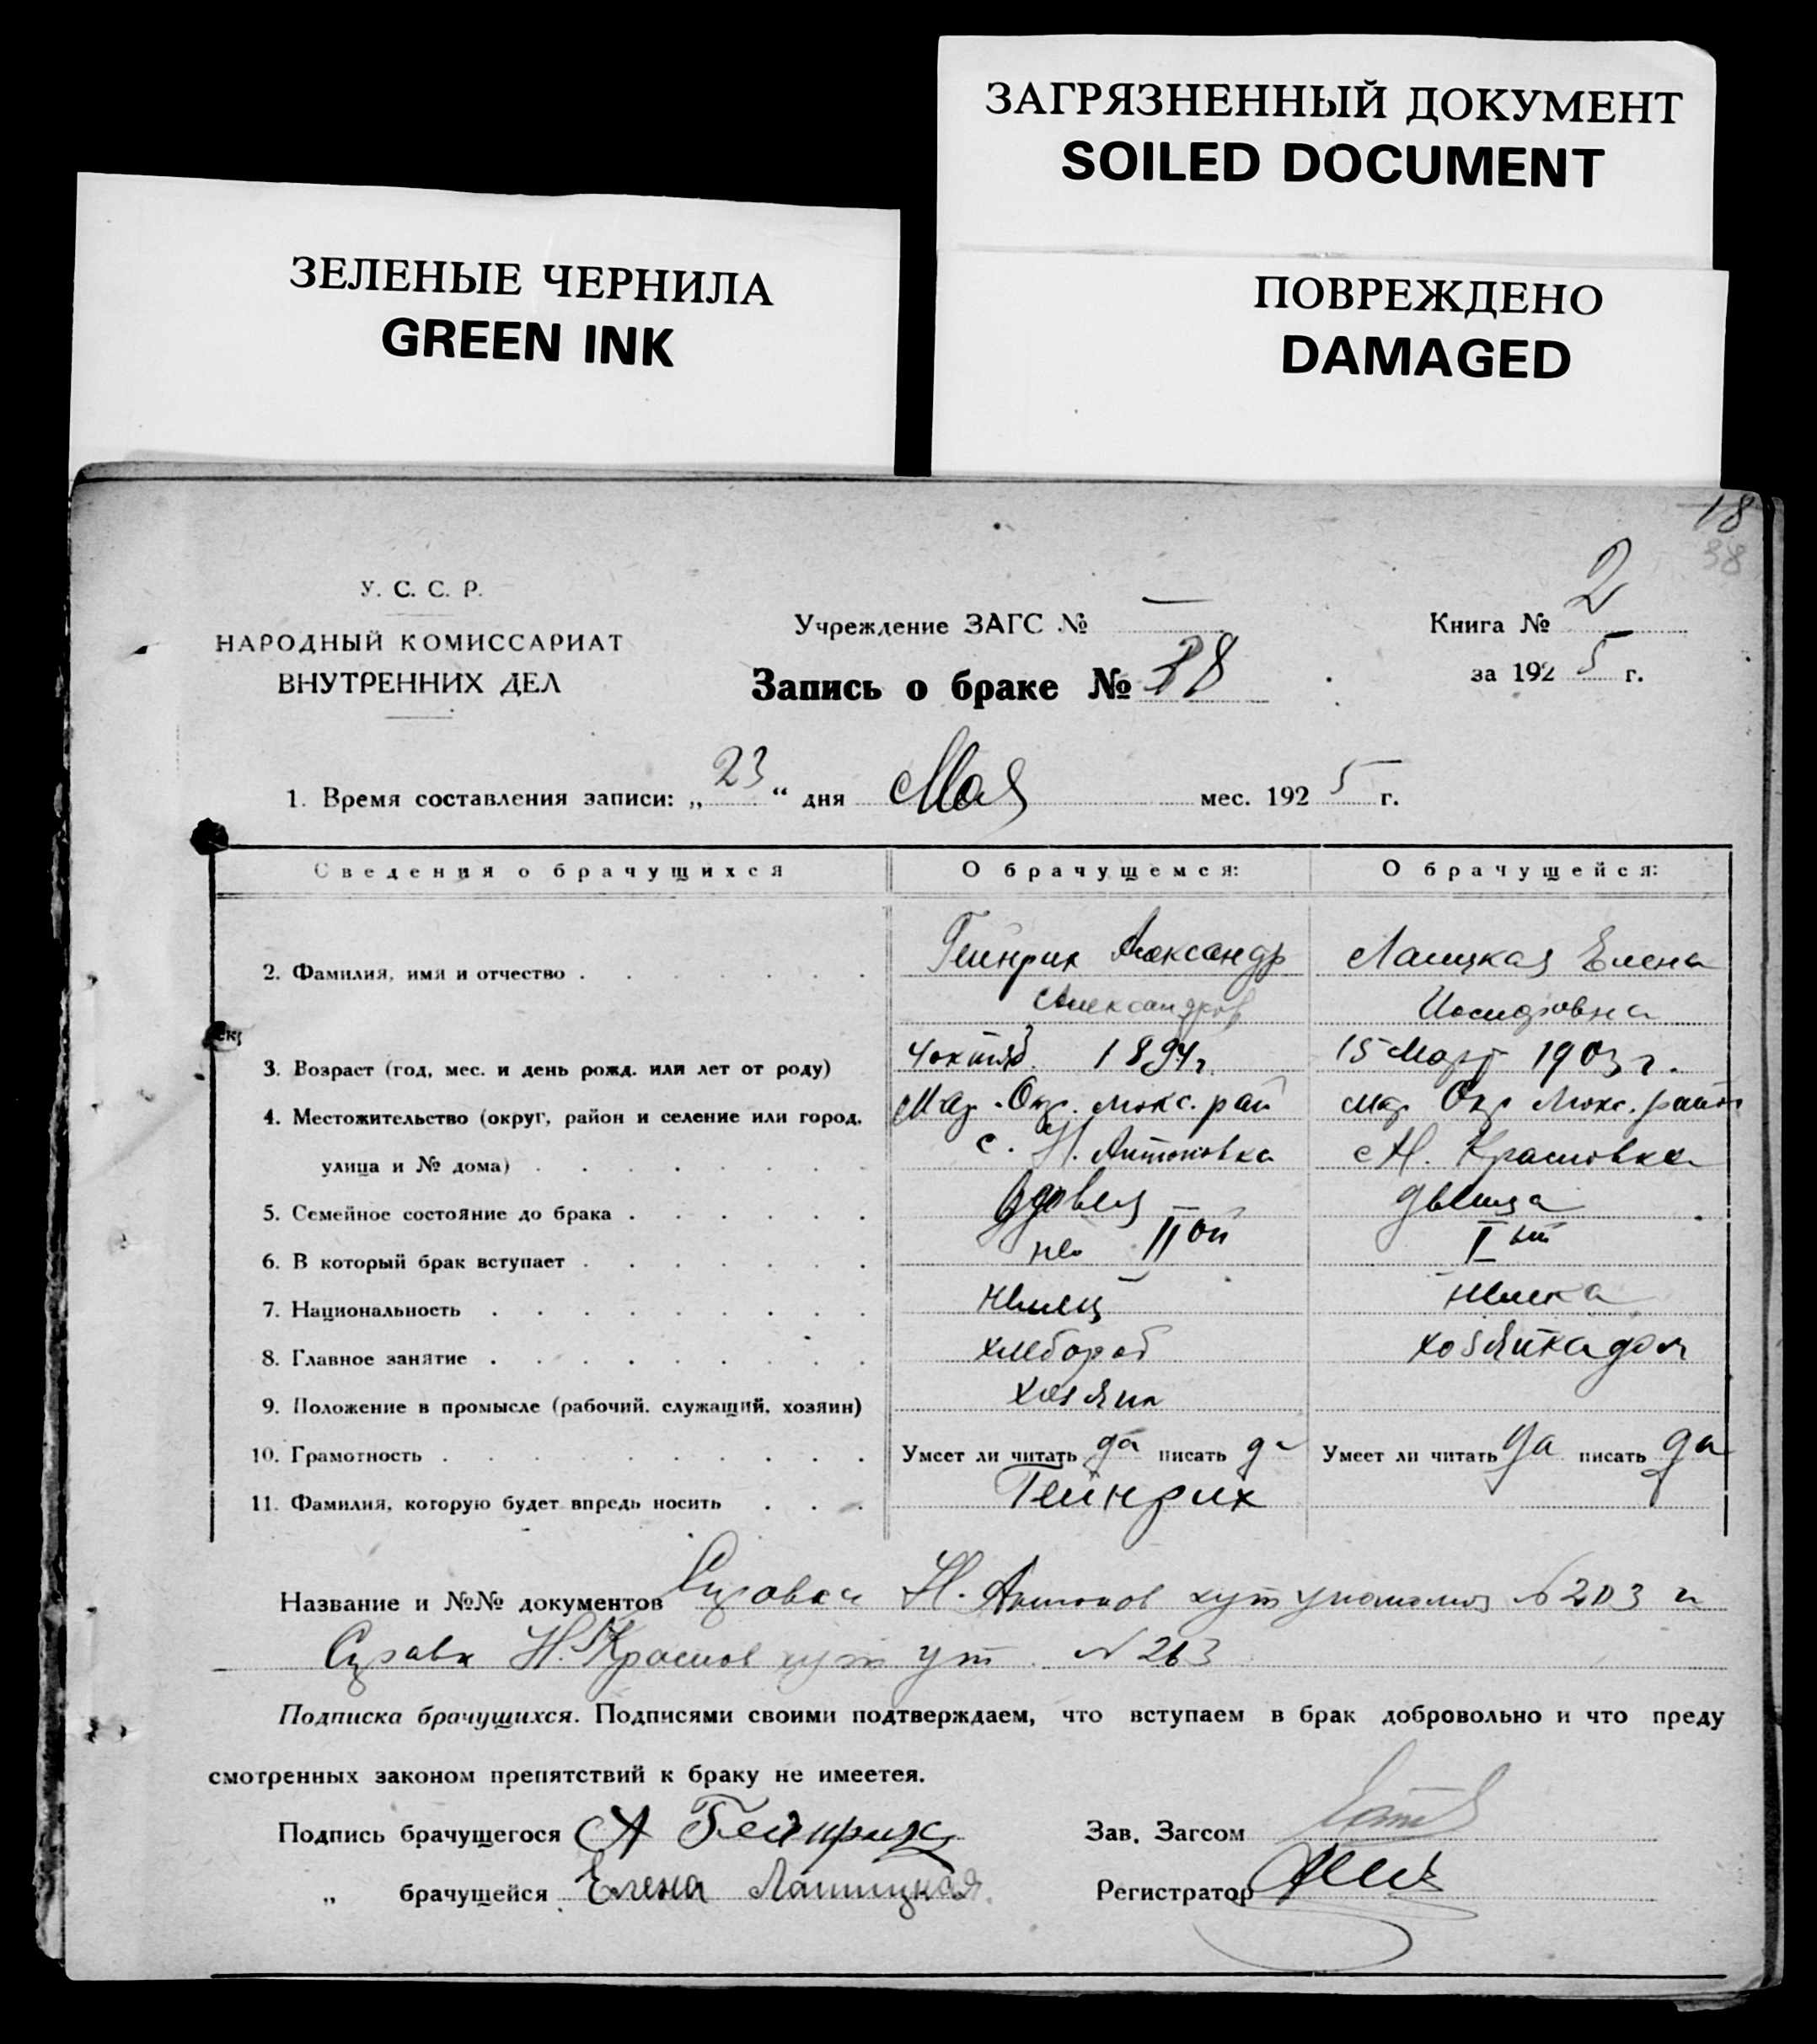 ЗАГРЯЗНЕННЫЙ ДОКУМЕНТ
SOILED DOCUMENT
ЗЕЛЕНЫЕ ЧЕРНИЛА
GREEN INK
ПОВРЕЖДЕНО
DAMAGED
18
38
У. С. С. Р.
НАРОДНЫЙ КОМИССАРИАТ
ВНУТРЕННИХ ДЕЛ
Учреждение ЗАГС № —
Книга № 2
Запись о браке № 38
за 1925 г.
1. Время составления записи: „23“ дня Мая мес. 1925 г.
Сведения о брачущихся О брачущемся: О брачущейся:
2. Фамилия, имя и отчество Гейнрих Александр Елена
Александров Иосифовна
3. Возраст (год, мес. и день рожд. или лет от роду) 4 октяб. 1894 г. 15 Март 1903 г.
4. Местожительство (округ, район и селение или город, Мар. Окр. Люкс. рай Мар Окр Люкс. район
улица и № дома) с. Н. Антоновка с Н. Красновка
5. Семейное состояние до брака вдовец девица
6. В который брак вступает во IIой Iый
7. Национальность немец немка
8. Главное занятие хлебороб хозяйка дом
9. Положение в промысле (рабочий, служащий, хозяин) хозяин
10. Грамотность Умеет ли читать да писать да Умеет ли читать да писать да
11. Фамилия, которую будет впредь носить Гейнрих
Название и №№ документов Справка Н. Антонов хут №203 и
Справк Н. Краснов хут ут №263
Подписка брачущихся. Подписями своими подтверждаем, что вступаем в брак добровольно и что преду
смотренных законом препятствий к браку не имеетея.
Подпись брачущегося А Гейнрих Зав. Загсом
„ брачущейся Елена Регистратор